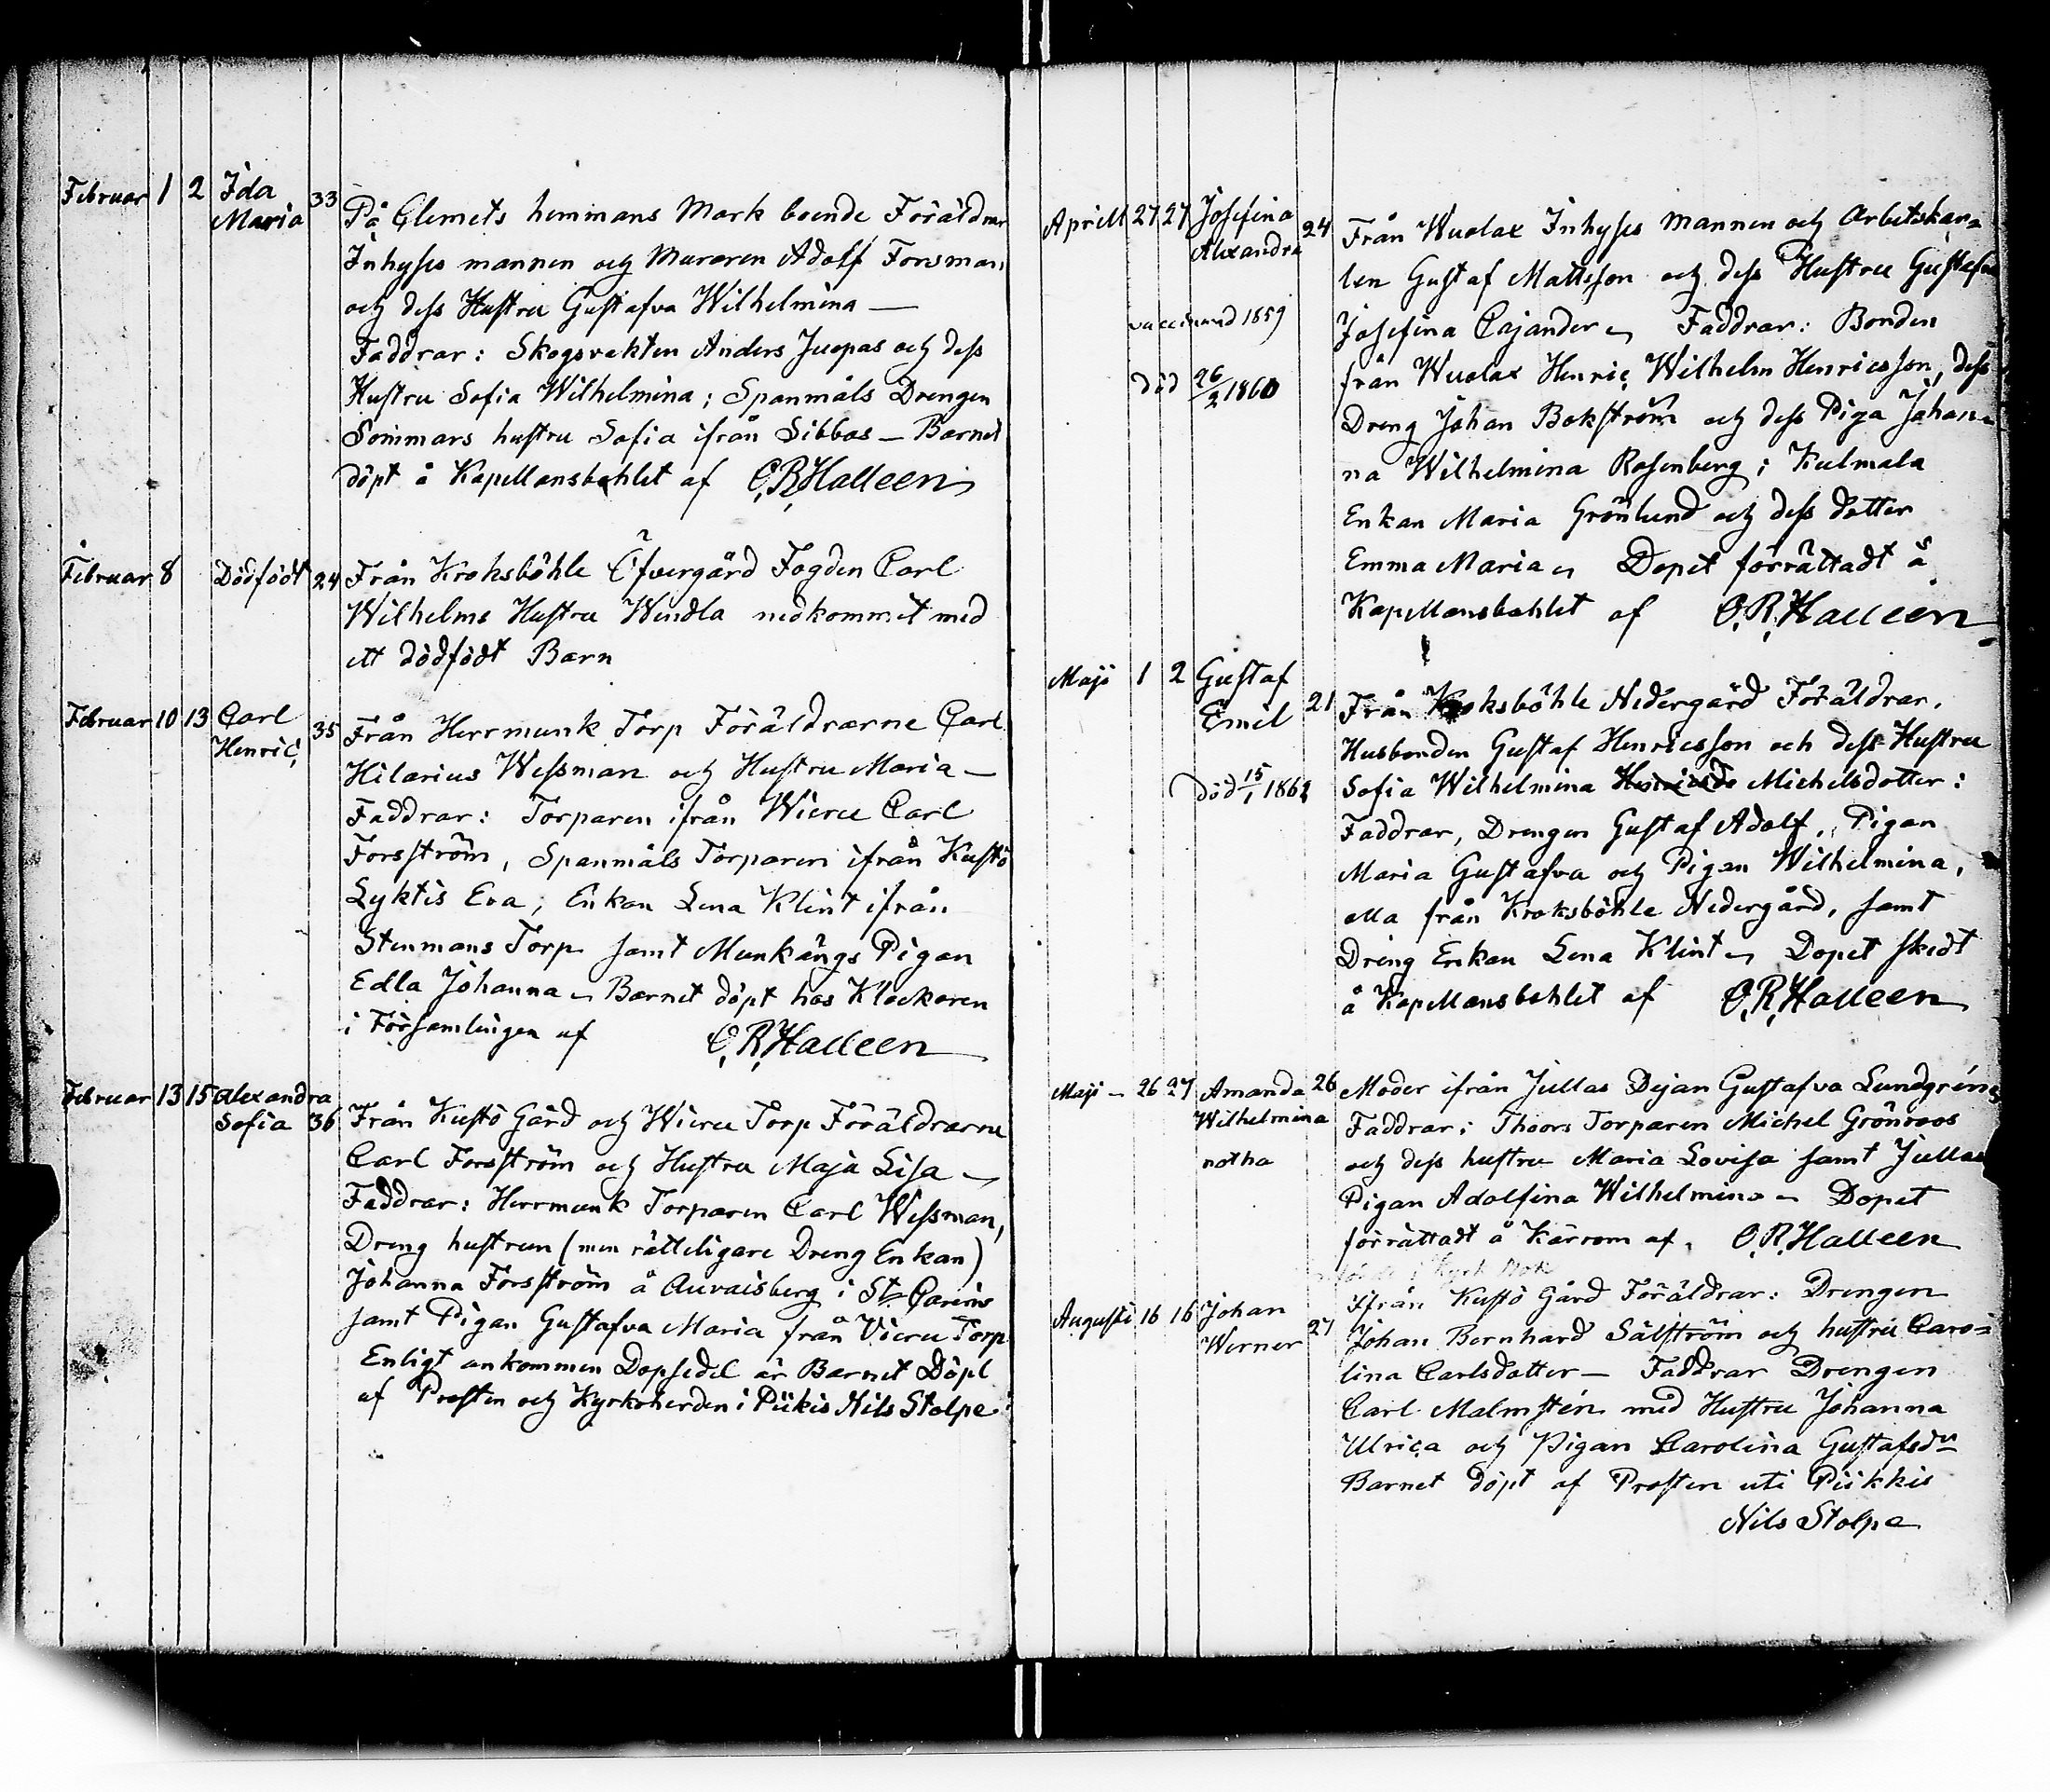 Februar 1 2 Ida
Maria 33
På Clemets hemmans Mark boende Föräldrar
Inhyses mannen och Muraren Adolf Forsman
och dess Hustru Gustafva Wilhelmina —
Faddrar: Skogsvakten Anders Juopas och dess
Hustru Sofia Wilhelmina; Spanmåls Drengen
Sommars hustru Sofia ifrån Sibbas — Barnet
döpt å Kapellansbohlet af C. R. Halleen
Februar 8 Dödfödt 24 Från Kroksböhle Öfvergård Fogden Carl
Wilhelms Hustru Wendla nedkommit med
ett dödfödt Barn
Februar 10 13 Carl
Henric 35 Från Herrmunk Torp Föräldrarne Carl
Hilarius Wessman och Hustru Maria —
Faddrar: Torparen ifrån Wieru Carl
Forsström, Spanmåls Torparen ifrån Kustö
Lyktis Eva, Enkan Lena Klint ifrån
Stenmans Torp samt Munkängs Pigan
Edla Johanna — Barnet döpt hos Klockaren
i Församlingen af C. R. Halleen
Februar 13 15 Alexandra
Sofia 36 Från Kustö Gård och Wieru Torp Föräldrarne
Carl Forsström och Hustru Maja Lisa —
Faddrar: Herrmunk Torparen Carl Wessman,
Dreng hustrun (men rätteligare Dreng Enkan)
Johanna Forsström å Auvaisberg i St Carins
samt Pigan Gustafva Maria från Vieru Torp
Enligt ankommen Dopsedel är Barnet Döpt
af Prosten och Kyrkoherden i Piikis Nils Stolpe
Aprill 27 27 Josefina
Alexandra 24
vaccinerad 1859
död 26/2 1860
Från Wuolax Inhyses mannen och Arbetskar=
len Gustaf Mattsson och dess Hustru Gustafva
Josefina Cajander — Faddrar: Bonden
från Wuolax Henric Wilhelm Henricsson, dess
Dreng Johan Bokström och dess Piga Johan=
na Wilhelmina Rosenberg; Kulmala
Enkan Maria Grönlund och dess dotter
Emma Maria — Dopet förrättadt å
Kapellansbohlet af C. R. Halleen
Maji 1 2 Gustaf
Emil 21
Död 15/1 1861
Från Kroksböhle Nedergård Föräldrar,
Husbonden Gustaf Henricsson och dess Hustru
Sofia Wilhelmina Michelsdotter:
Faddrar, Drengen Gustaf Adolf, Pigan
Maria Gustafva och Pigan Wilhelmina,
alla från Kroksböhle Nedergård, samt
Dreng Enkan Lena Klint — Dopet skedt
å Kapellansbohlet af C. R. Halleen
Maji — 26 27 Amanda 26
Wilhelmina
notha
Moder ifrån Jullas Dejan Gustafva Lundgréns
Faddrar: Thoors Torparen Michel Grönroos
och dess hustru Maria Lovisa samt Jullas
Pigan Adolfina Wilhelmina — Dopet
förrättadt å Kärrom af C. R. Halleen
Augusti 16 16 Johan
Werner 27
Ifrån Kustö Gård Föräldrar: Drengen
Johan Bernhard Sälström och hustru Caro=
lina Carlsdotter — Faddrar Drengen
Carl Malmstén med Hustru Johanna
Ulrica och Pigan Carolina Gustafsdr
Barnet döpt af Prosten uti Piikkis
Nils Stolpe